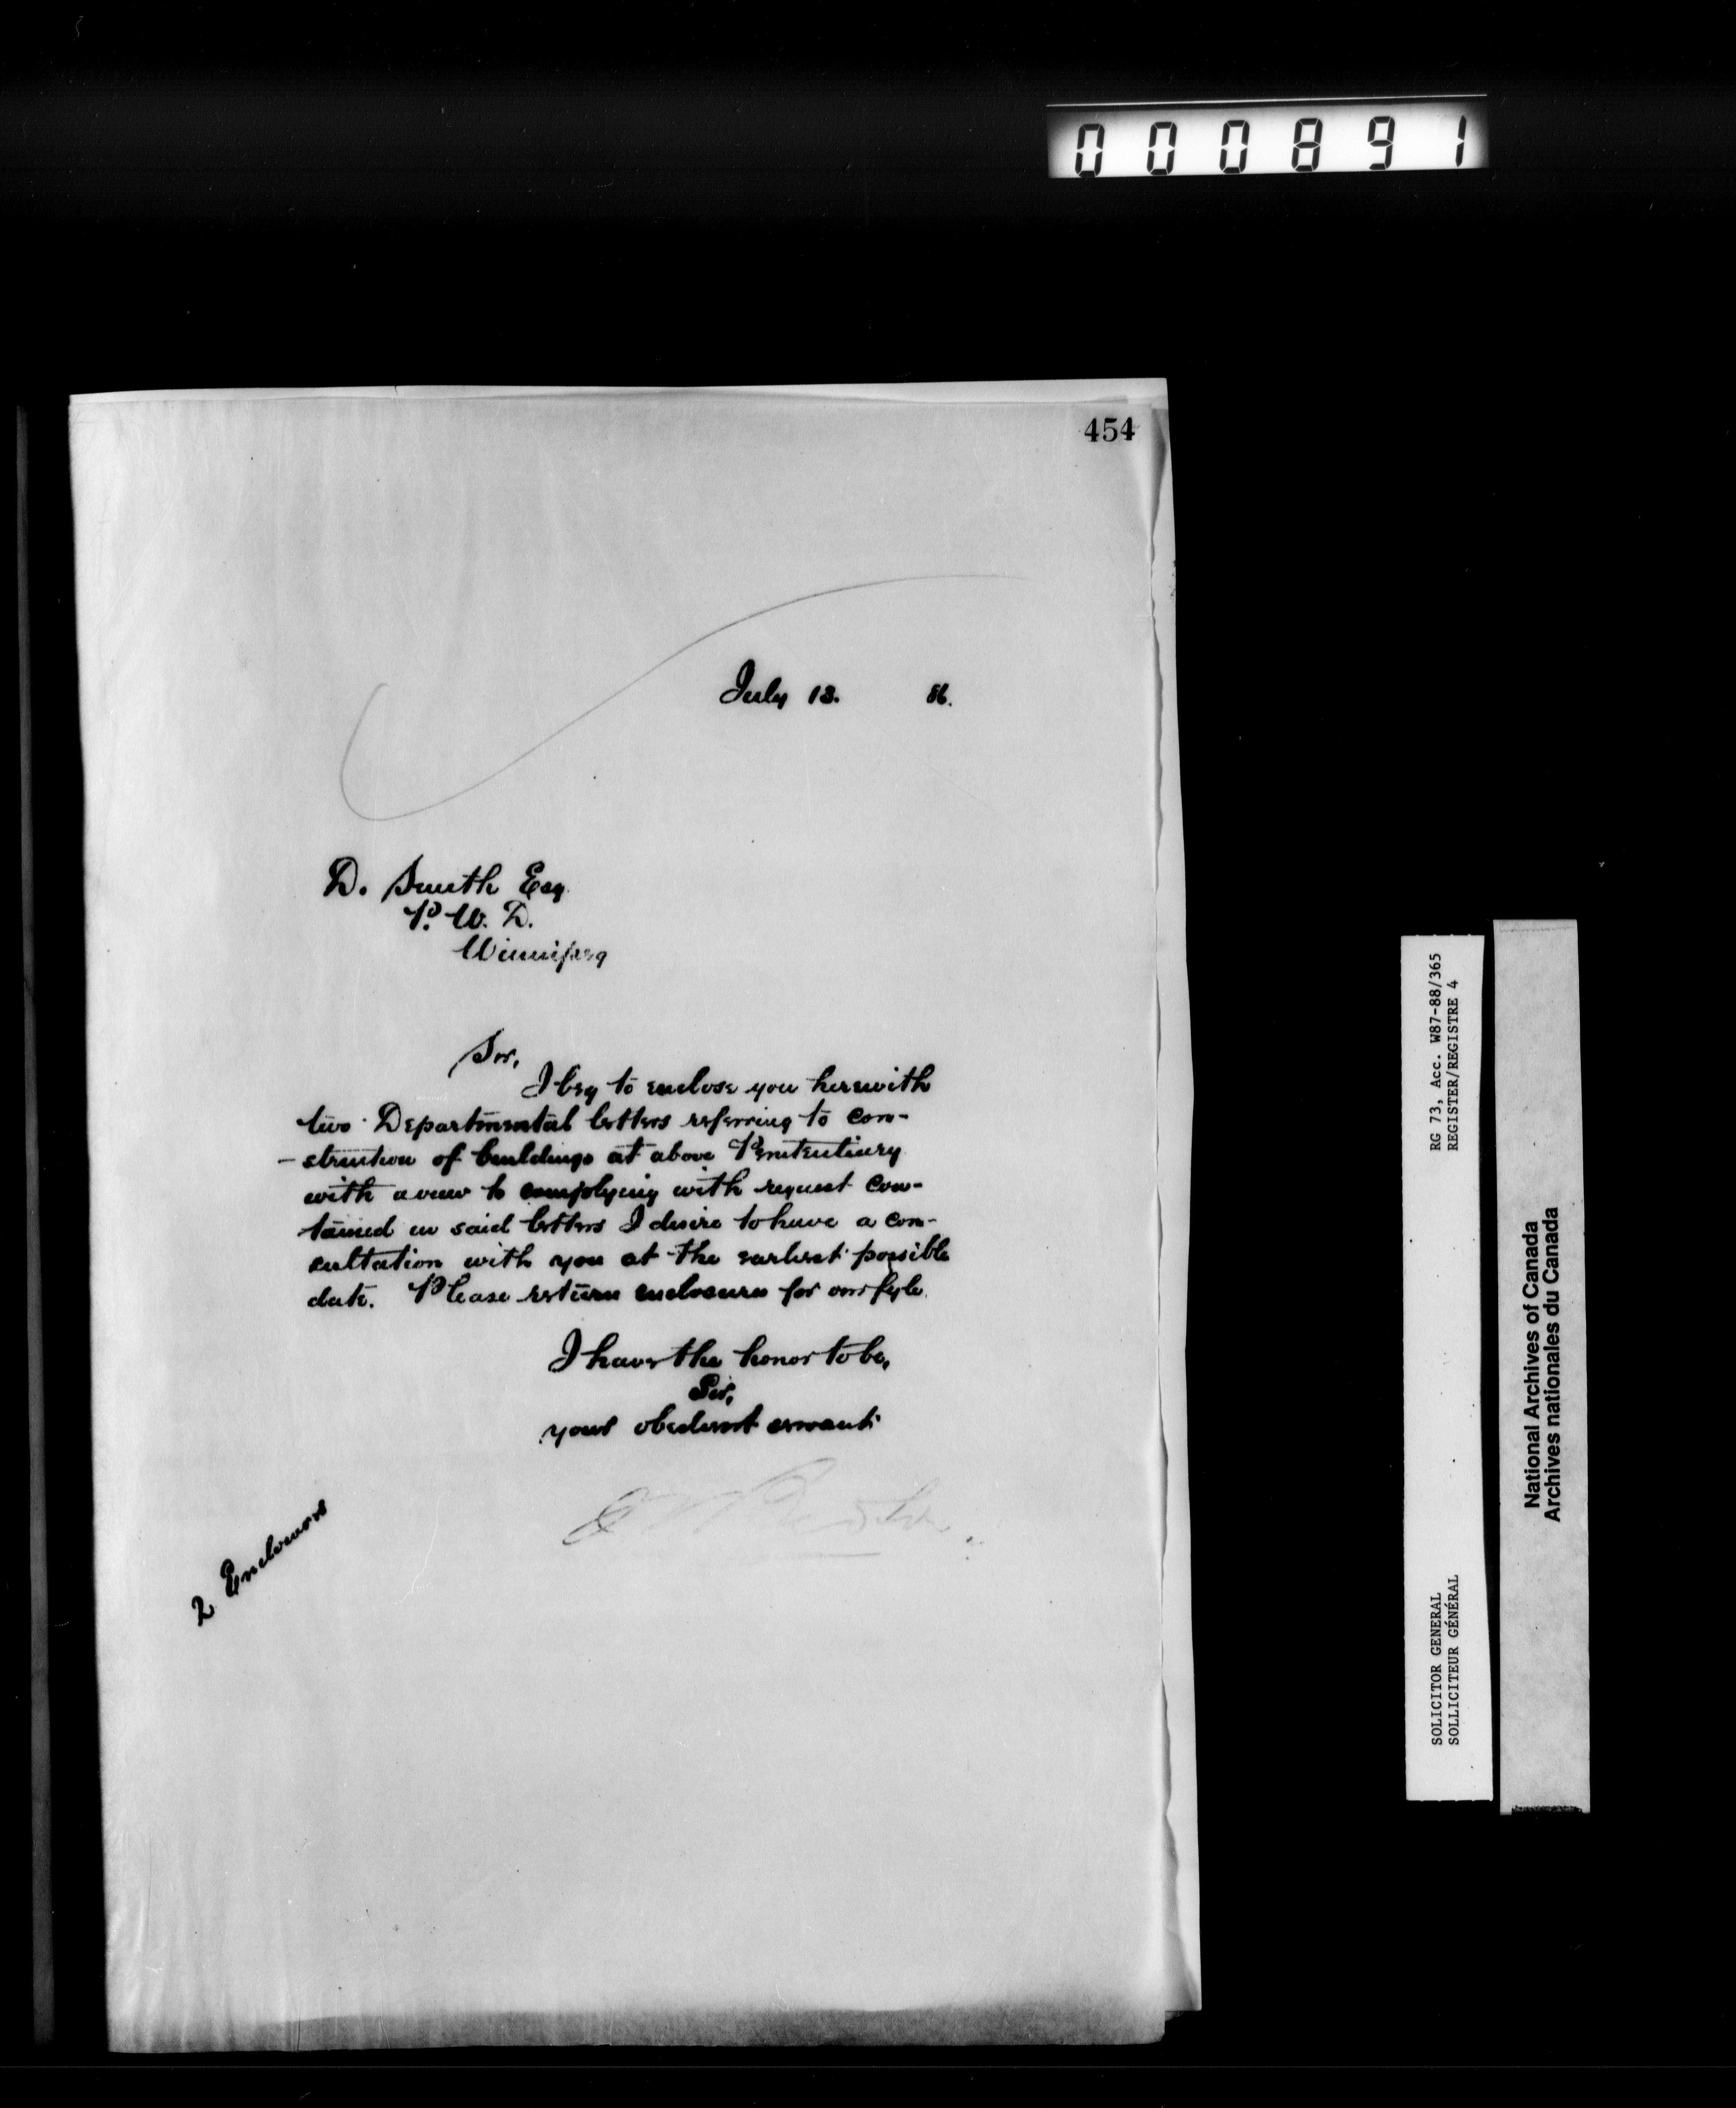 000891
454
July 13. 86.
D. Smith Esq
P. W. D.
Winnipeg
Sir,
I beg to enclose you herewith
two Departmental letters referring to con-
-struction of buildings at above Penitentiary
with a view to complying with request con-
tained in said letters I desire to have a con-
sultation with you at the earliest possible
date. Please return enclosures for our fyle.
I have the honor to be,
Sir,
your obedient servant
2 Enclosures
RG 73, Acc. W87-88/365
REGISTER/REGISTRE 4
SOLICITOR GENERAL
SOLLICITEUR GÉNÉRAL
National Archives of Canada
Archives nationales du Canada